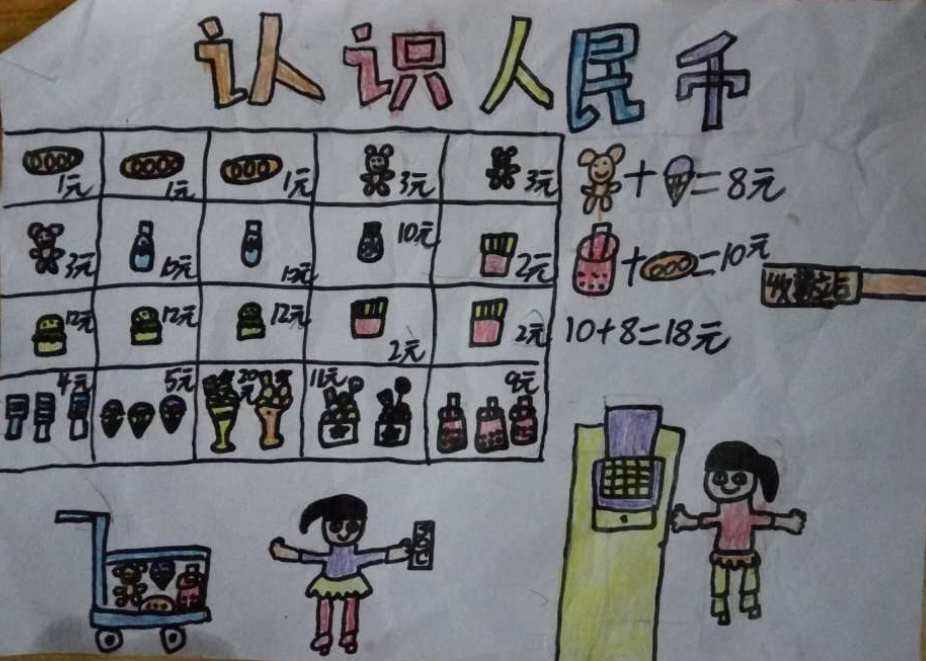 认识人民币
1元 1元 1元 3元 3元
3元 10元 2元
12元 12元 12元 2元 2元
4元 5元 20元 11元 9元
+ = 8元
+ = 10元
10+8=18元